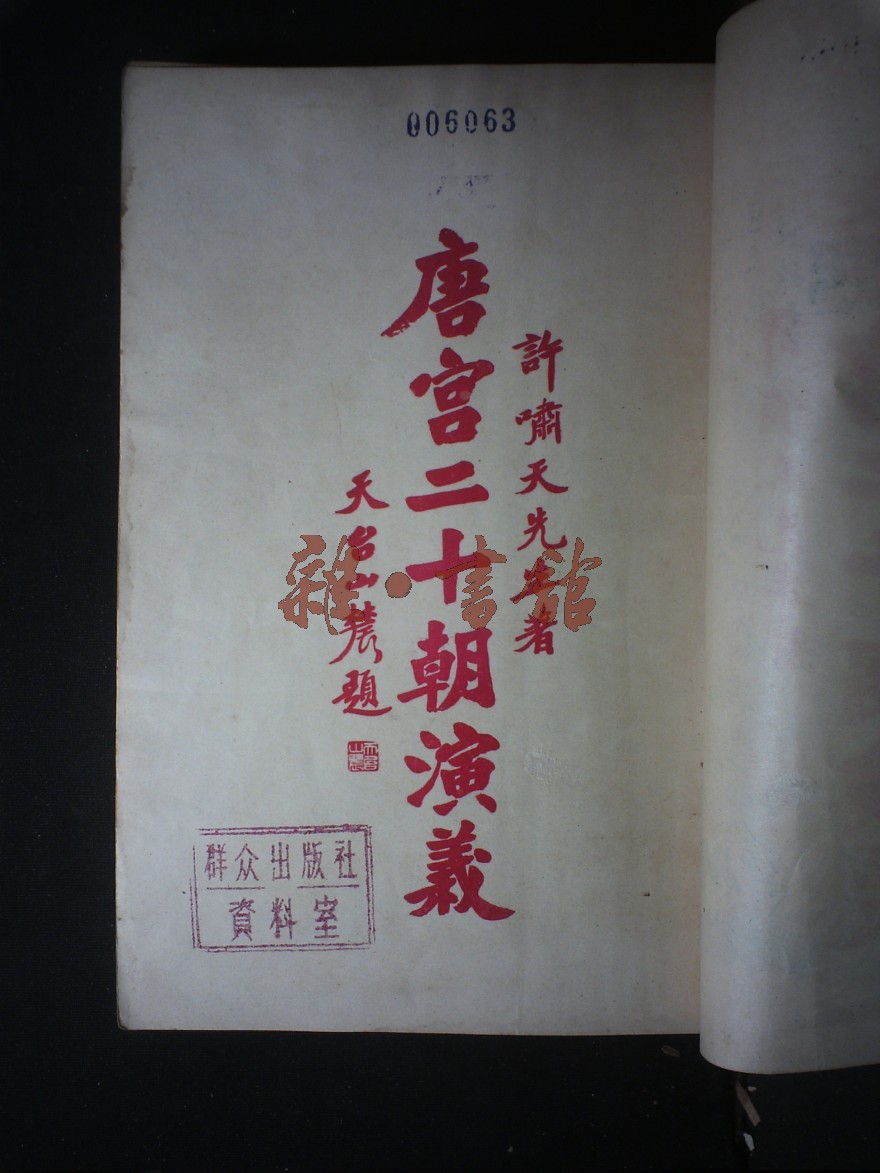 006063
許嘯天先生著
唐宮二十朝演義
天台山農題
天台山農
群众出版社
資料室
雜·書館